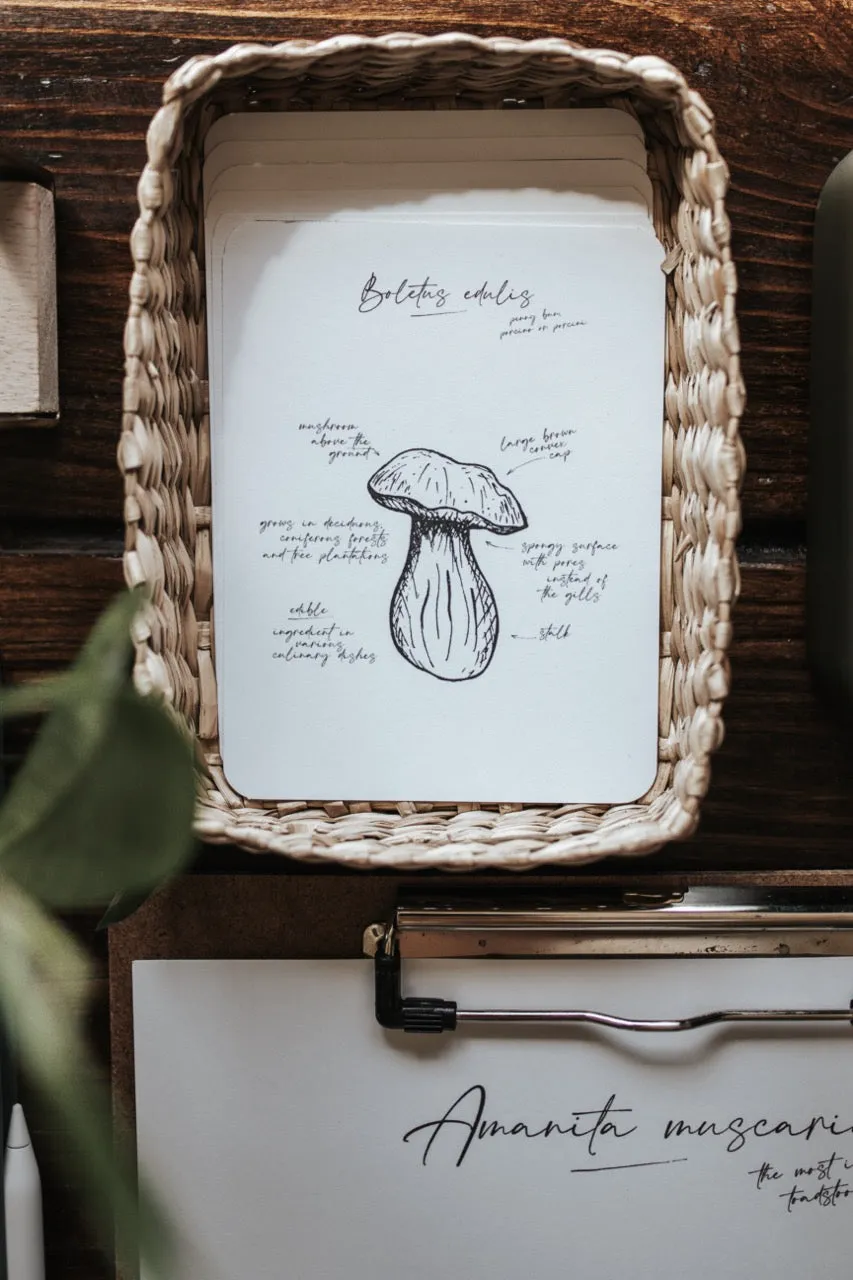 Boletus edulis
penny bun
porcino or porcini
mushroom
above the
ground
large brown
convex
cap
grows in deciduous,
coniferous forests
and tree plantations
spongy surface
with pores
instead of
the gills
edible
ingredient in
various
culinary dishes
stalk
Amanita muscari
the most
toadsto